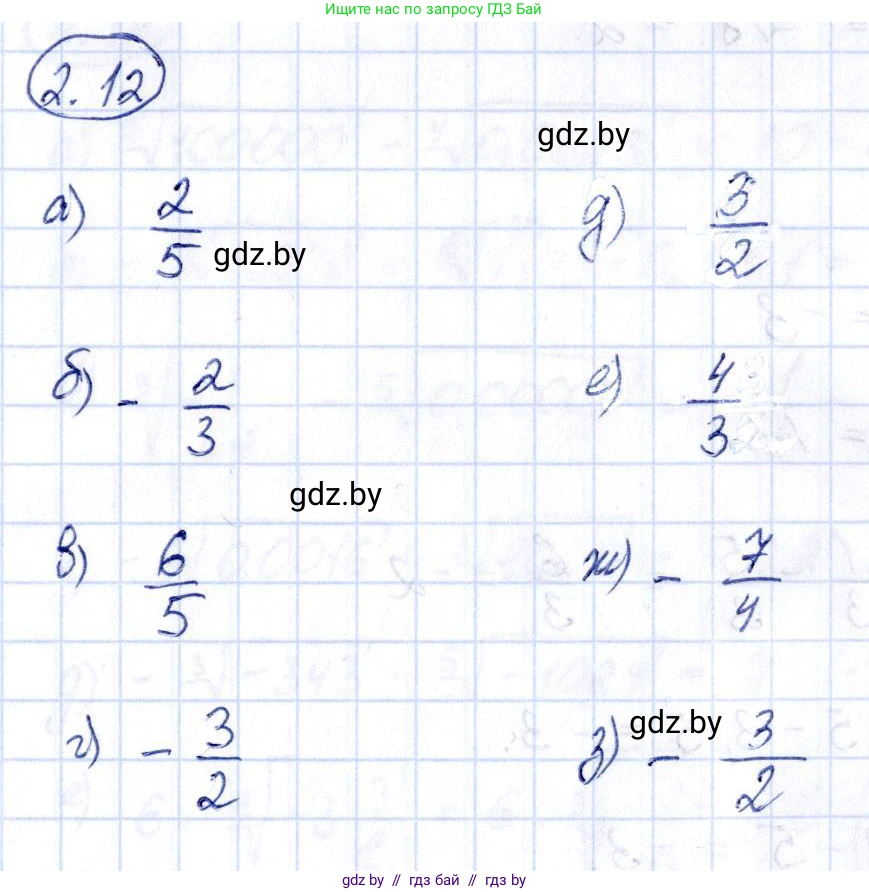 Ищите нас по запросу ГДЗ Бай
2.12
gdz.by
а) 2/5
gdz.by
д) 3/2
б) - 2/3
е) 4/3
gdz.by
в) 6/5
ж) - 7/4
г) - 3/2
gdz.by
з) - 3/2
gdz.by // гдз бай // gdz.by